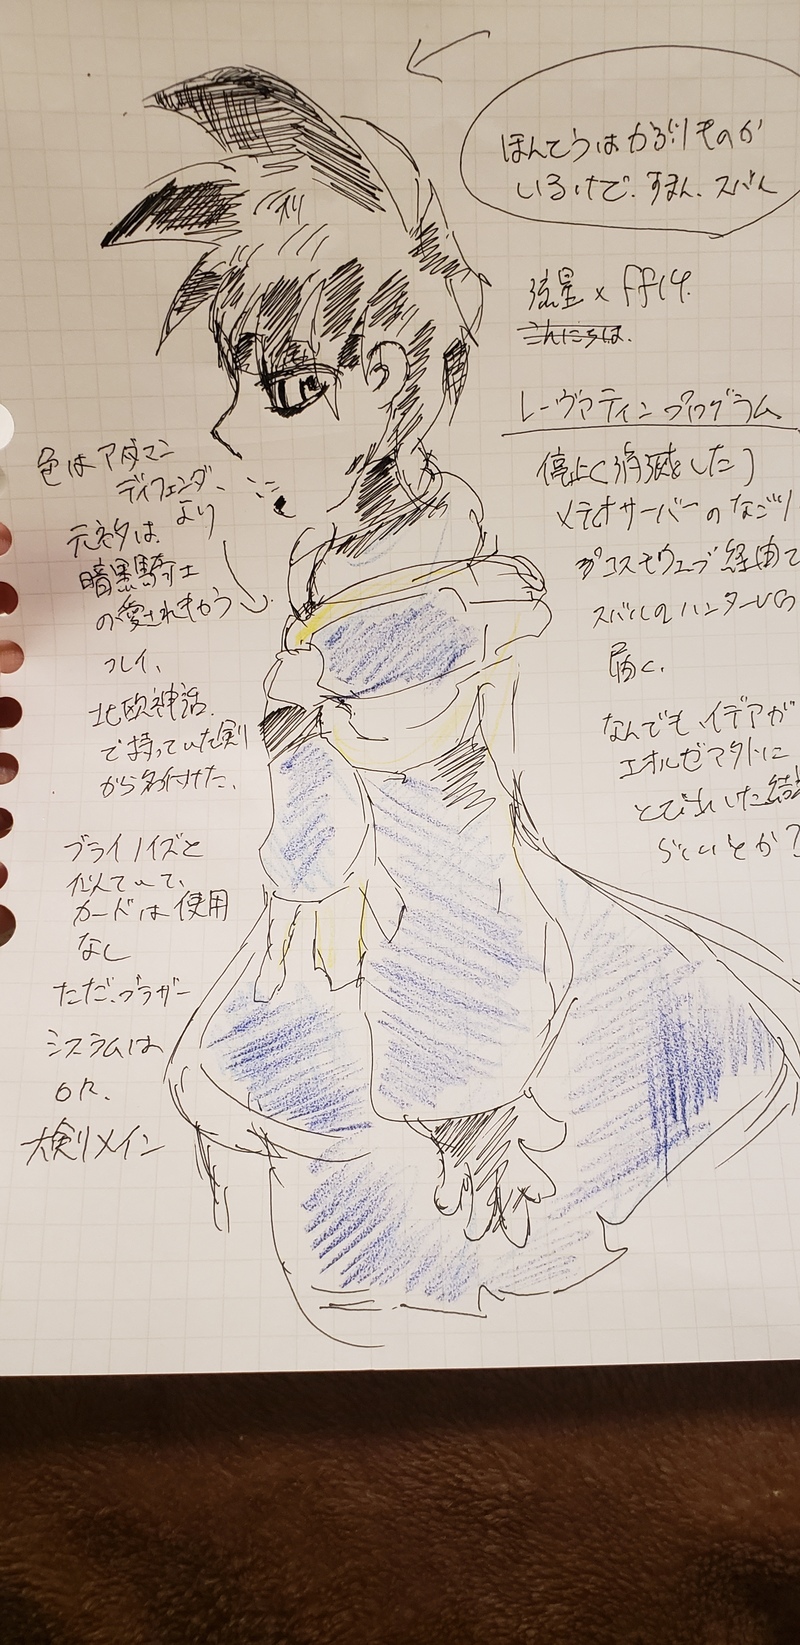 ほんとうはかぶりものが
いるけど、すまん、スバル
流星×ff14.
こんにちは.
レーヴァティンプログラム
停止(消滅をした)
メテオサーバーのなごり
がコスモウェーブ経由で
スバルのハンターVGへ
届く.
なんでも、イデアが
エオルゼアタトに
とび出した結
らしいとか?
色はアダマン
ディフェンダ、
より
元ネタは
暗黒騎士
の愛されきかう
フレイ、
北欧神話.
で持っていた剣
から名付けた、
ブライノイズと
似ていて、
カードは使用
なし
ただ、ブラザー
システムは
OK.
大剣メイン